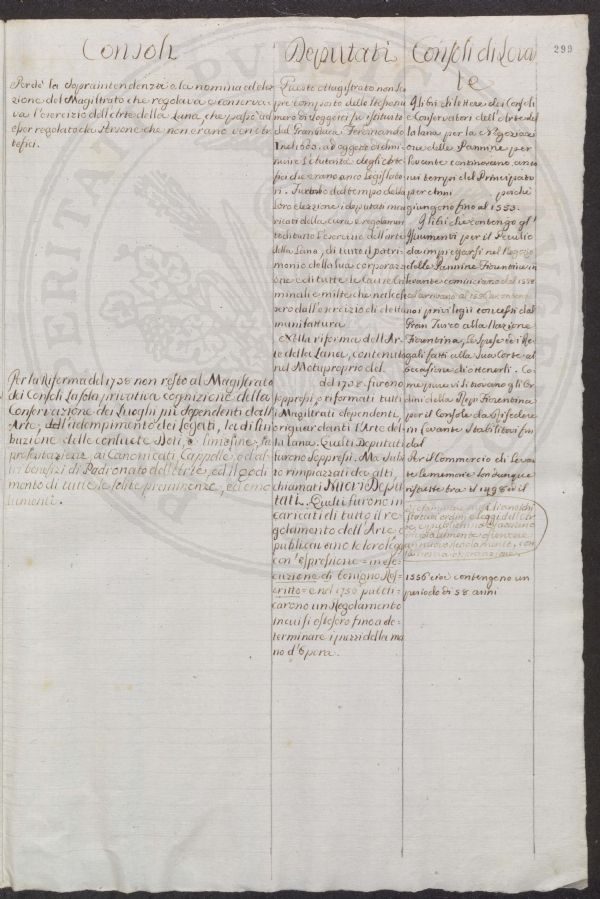 299
Consoli
Perdè la sopraintendenza e la nomina ed ele-
zione del Magistrato che regolava e conserva-
va l'esercizio dell'Arte della Lana, che passò ad
esser regolato da Persone che non erano veri Ar-
tefici.
Per la Riforma del 1738 non restò al Magistrato
dei Consoli La sola privativa cognizione della
Conservazione dei Luoghi pii dependenti dall'
Arte, dell'adempimento dei Legati, la distri-
buzione delle consuete Doti, e limosine, la
presentazione ai Canonicati Cappelle ed al-
tri benefizi di Padronato dell'Arte, ed il godi-
mento di tutte le solite preminenze, ed emo-
lumenti.
Deputati
Questo Magistrato non sem
pre composto dello stesso nu
mero di Soggetti fu istituito
dal Granduca Ferdinando
I nel 1603. ad oggetto di dimi-
nuire l'autorità degli Arte
fici che erano anco Legislato
ri. Furono dal tempo della
loro elezione i deputati inca
ricati della cura e regolamen
to di tutto l'esercizio dell'arte
della Lana, di tutto il patri-
monio della sua corporazi
one e di tutte le Cause Cri
minali e miste che nascess
ero dall'esercizio di detta
manifattura
Nella riforma dell'Ar-
te della Lana, contenuta
nel Motuproprio del
del 1738. furono
soppressi, o riformati tutti
i Magistrati dependenti,
o riguardanti l'Arte del
la Lana. Questi Deputati
furono soppressi. Ma furo
no rimpiazzati da altri,
chiamati Nuovi Depu
tati. Questi furono in
caricati di tutto il re-
golamento dell'Arte e
publicavano le loro leggi
con l'espressione = in ese-
cuzione di benigno Res-
critto = e nel 1750 publi-
carono un Regolamento
in cui si estesero fino a de-
terminare i prezzi della ma
no d'Opera.
Consoli di Leva
te
Gli libri di lettere dei Consoli
e Conservatori dell'Arte del
la lana per la Negoziazi
one delle Pannine per
Levante continovano anco
nei tempi del Principato
per anni poichè
giungono fino al 1553.
Gli libri che contengono gl'
Istrumenti per il Peculio
da impiegarsi nel Negozio
delle Pannine Fiorentine in
Levante cominciano dal 1558
ed arrivano al 1556, e conteng
ono i privilegii concessi dal
Gran Turco alla Nazione
Fiorentina, le spese ed i Re
gali fatti alla sua Corte al
occasione di ottenerli. Co
me pure vi si trovano gli Or
dini della Rep. Fiorentina
per il Console da risedere
in Levante Stabiliti fin
dal
Per il Commercio di Levan
te le memorie son dunque
ristrette tra il 1498 e il
1556 cioè contengono un
periodo di 58 anni